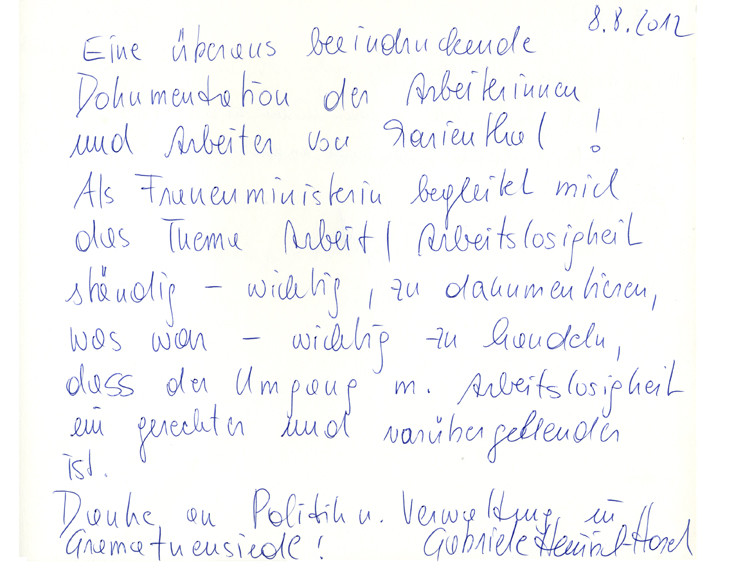 8.8.2012
Eine überaus beeindruckende
Dokumentation der Arbeiterinnen
und Arbeiter von Marienthal !
Als Frauenministerin begleitet mich
das Thema Arbeit/Arbeitslosigkeit
ständig – wichtig, zu dokumentieren,
was war – wichtig zu handeln,
dass der Umgang m. Arbeitslosigkeit
ein gerechter und vorübergehender
ist.
Danke an Politik u. Verwaltung in
Gramatneusiedl !
Gabriele Heinisch-Hosek